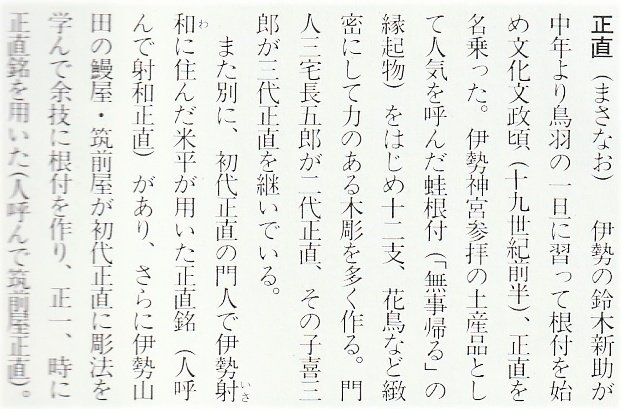 正直（まさなお）　伊勢の鈴木新助が
中年より鳥羽の一旦に習って根付を始
め文化文政頃（十九世紀前半）、正直を
名乗った。伊勢神宮参拝の土産品とし
て人気を呼んだ蛙根付（「無事帰る」の
縁起物）をはじめ十二支、花鳥など緻
密にして力のある木彫を多く作る。門
人三宅長五郎が二代正直、その子喜三
郎が三代正直を継いでいる。
　また別に、初代正直の門人で伊勢射いさ
和わに住んだ米平が用いた正直銘（人呼
んで射和正直）があり、さらに伊勢山
田の鰻屋・筑前屋が初代正直に彫法を
学んで余技に根付を作り、正一、時に
正直銘を用いた（人呼んで筑前屋正直）。